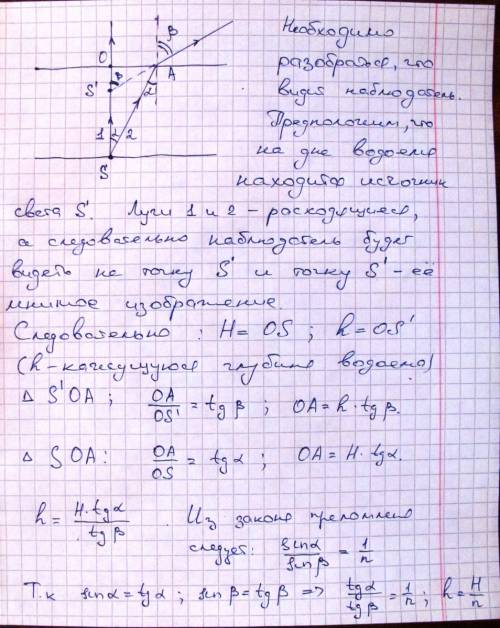 Необходимо
разобраться, что
видит наблюдатель.
Предположим, что
на дне водоема
находится источник
света S'. Лучи 1 и 2 – расходящиеся,
а следовательно наблюдатель будет
видеть не точку S' и точку S' – её
мнимое изображение.
Следовательно : H = OS ; h = OS'
(h – кажущуюся глубина водоема)
Δ S'OA ; OA/OS' = tg β ; OA = h · tg β.
Δ SOA : OA/OS = tg α ; OA = H · tg α.
h = H · tg α / tg β . Из закона преломлен
следует: sin α / sin β = 1/n
Т.к sin α = tg α ; sin β = tg β => tg α / tg β = 1/n ; h = H/n
O
S'
β
β
A
α
1
α
2
S
1